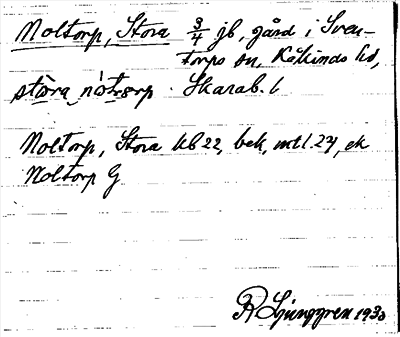 Noltorp, Stora 3/4 jb, gård i Sven-
torps sn, Kåkinds hd,
stora nòtærp. Skarab. l
Noltorp, Stora kb 22, bek, mtl. 27, ek
Noltorp G
R Ljunggren 1930